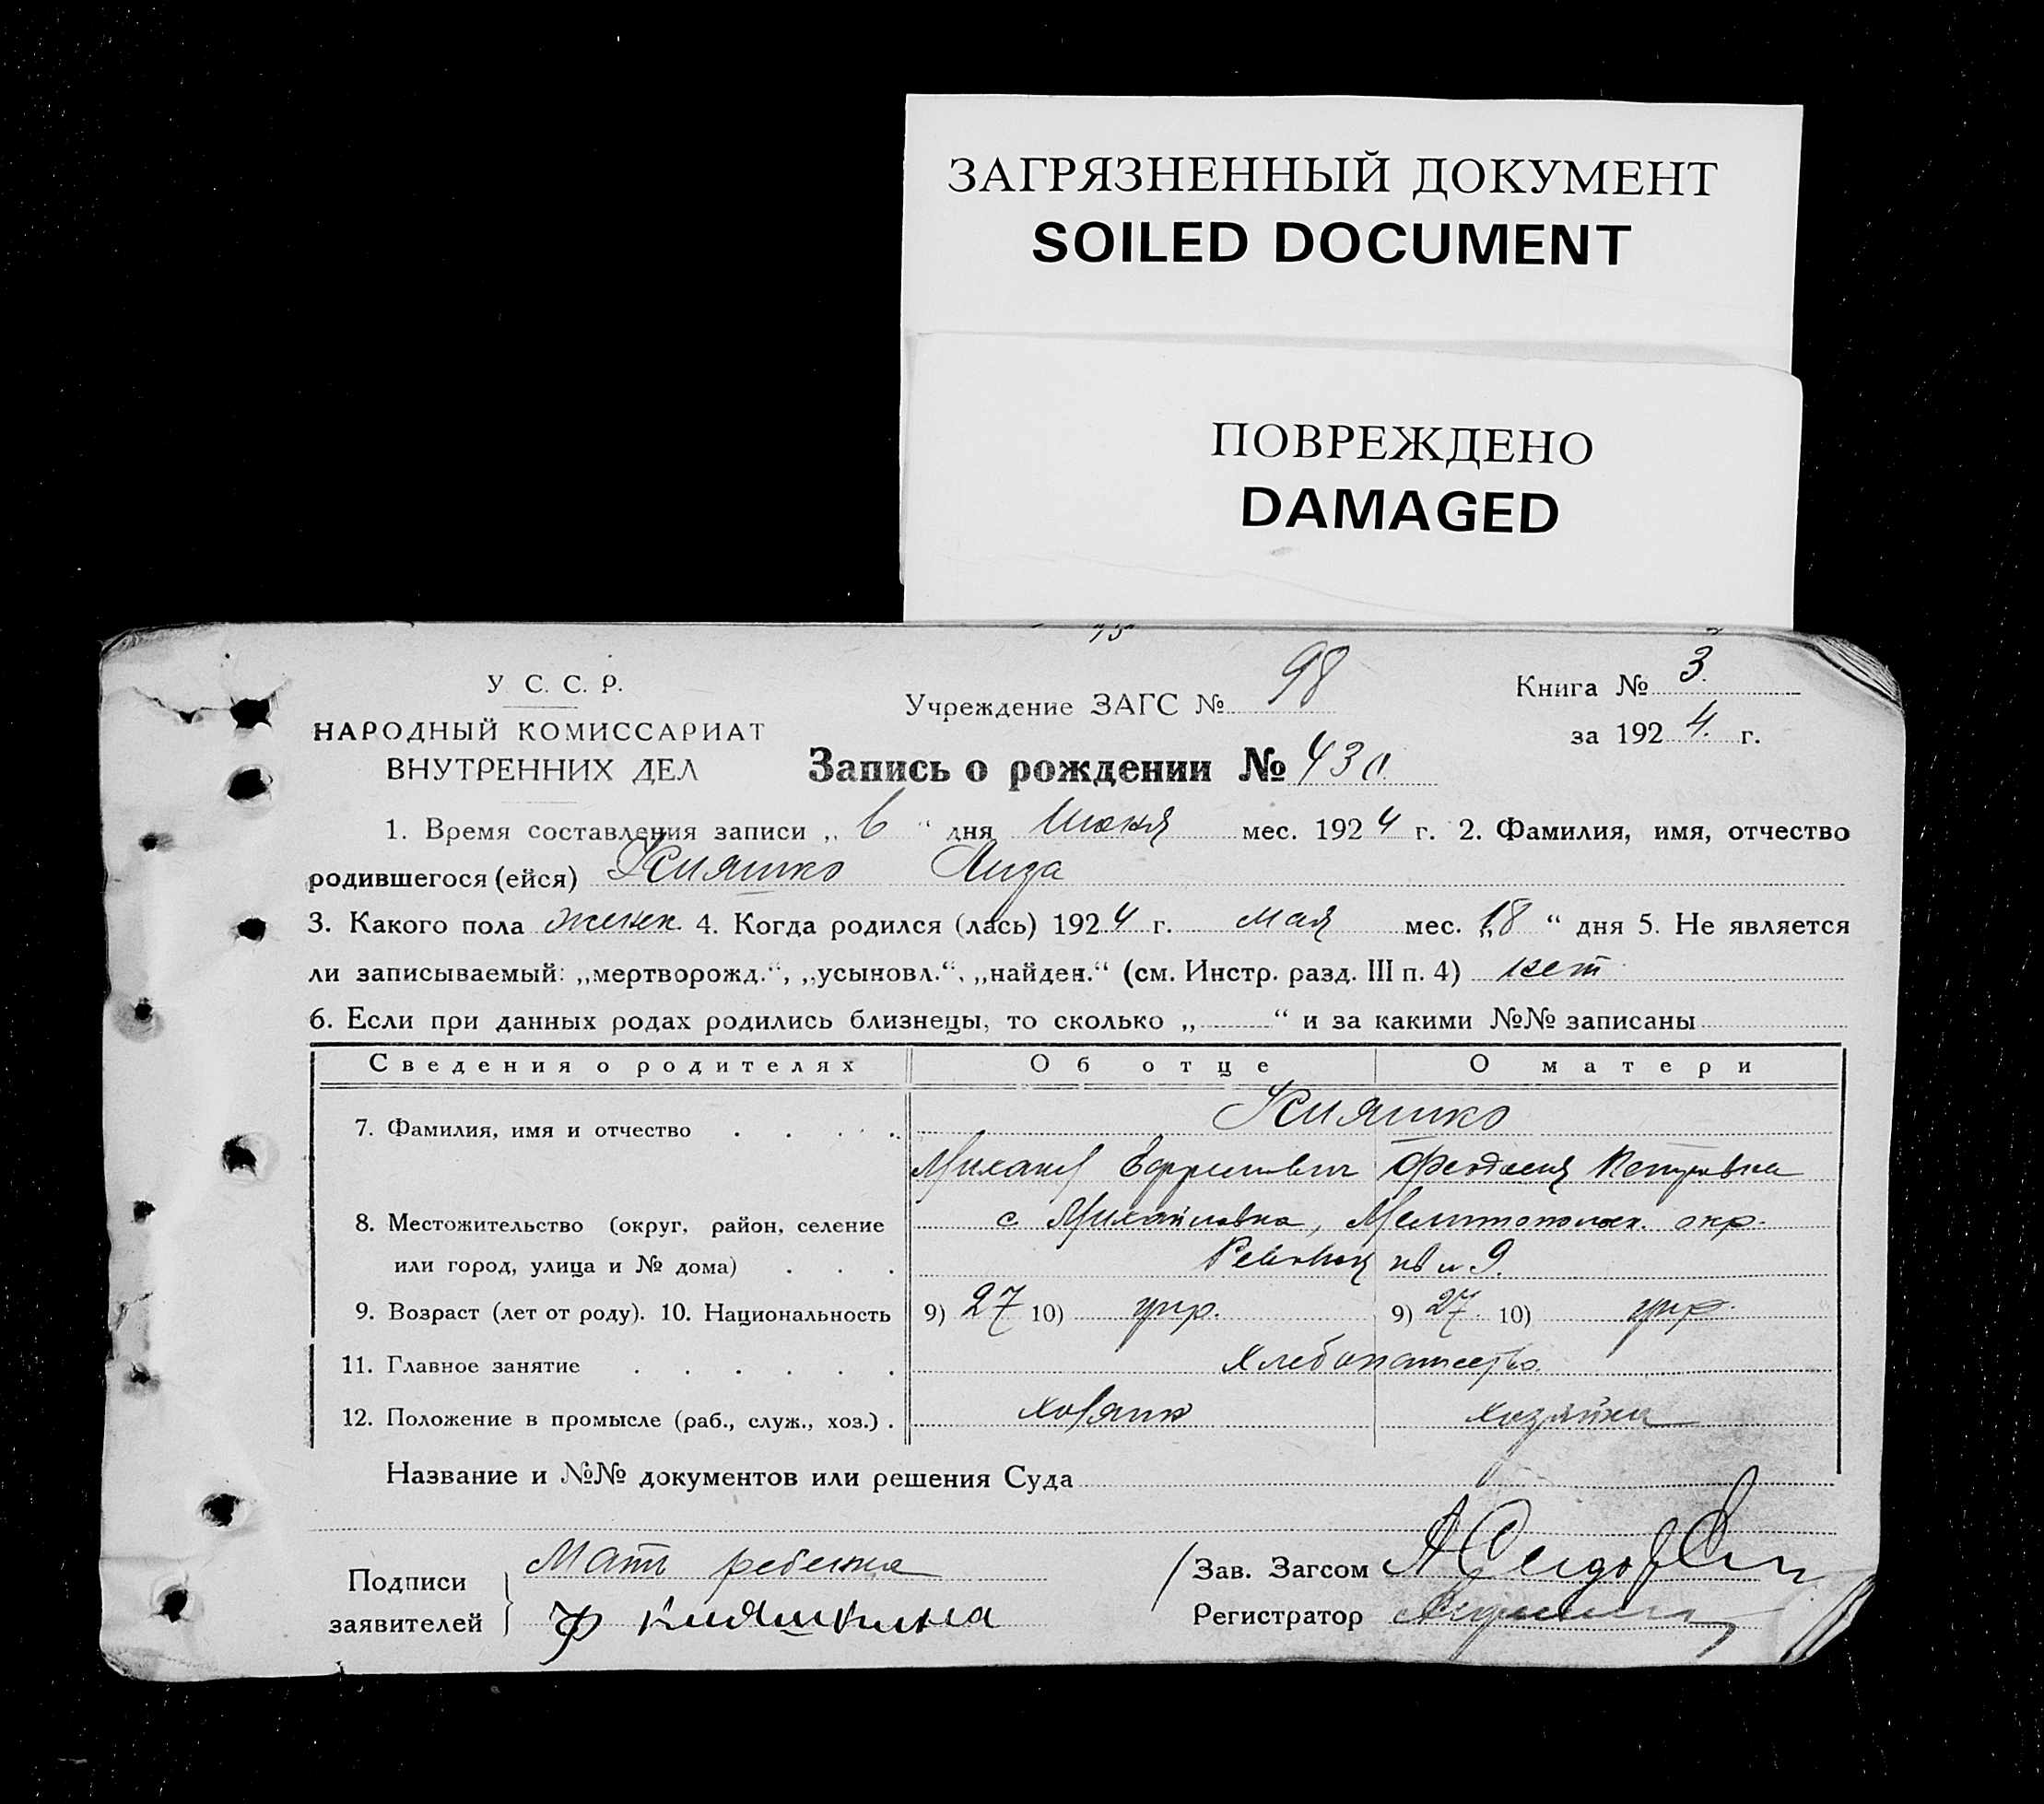 ЗАГРЯЗНЕННЫЙ ДОКУМЕНТ
SOILED DOCUMENT
ПОВРЕЖДЕНО
DAMAGED
У С. С. Р.
НАРОДНЫЙ КОМИССАРИАТ
ВНУТРЕННИХ ДЕЛ
Учреждение ЗАГС № 98
Книга № 3
за 1924 г.
Запись о рождении № 430
1. Время составления записи „ 6 “ дня Июня мес. 1924 г. 2. Фамилия, имя, отчество
родившегося (ейся) Кияшко Лиза
3. Какого пола женск. 4. Когда родился (лась) 1924 г. мая мес. „18“ дня 5. Не является
ли записываемый: „мертворожд.“, „усыновл.“, „найден.“ (см. Инстр. разд. III п. 4) нет
6. Если при данных родах родились близнецы, то сколько „ “ и за какими №№ записаны
Сведения о родителях Об отце О матери
Кияшко
7. Фамилия, имя и отчество
Михаил Ефимович Феодосия Петровна
8. Местожительство (округ, район, селение с. Михайловка, Мелитопольск. окр.
или город, улица и № дома) 9.
9. Возраст (лет от роду). 10. Национальность 9) 27 10) укр. 9) 27 10) укр.
11. Главное занятие Хлебопашество
12. Положение в промысле (раб., служ., хоз.) . хозяин хозяйка
Название и №№ документов или решения Суда
Мать ребенка
Подписи
заявителей Ф Кияшкина
Зав. Загсом
Регистратор